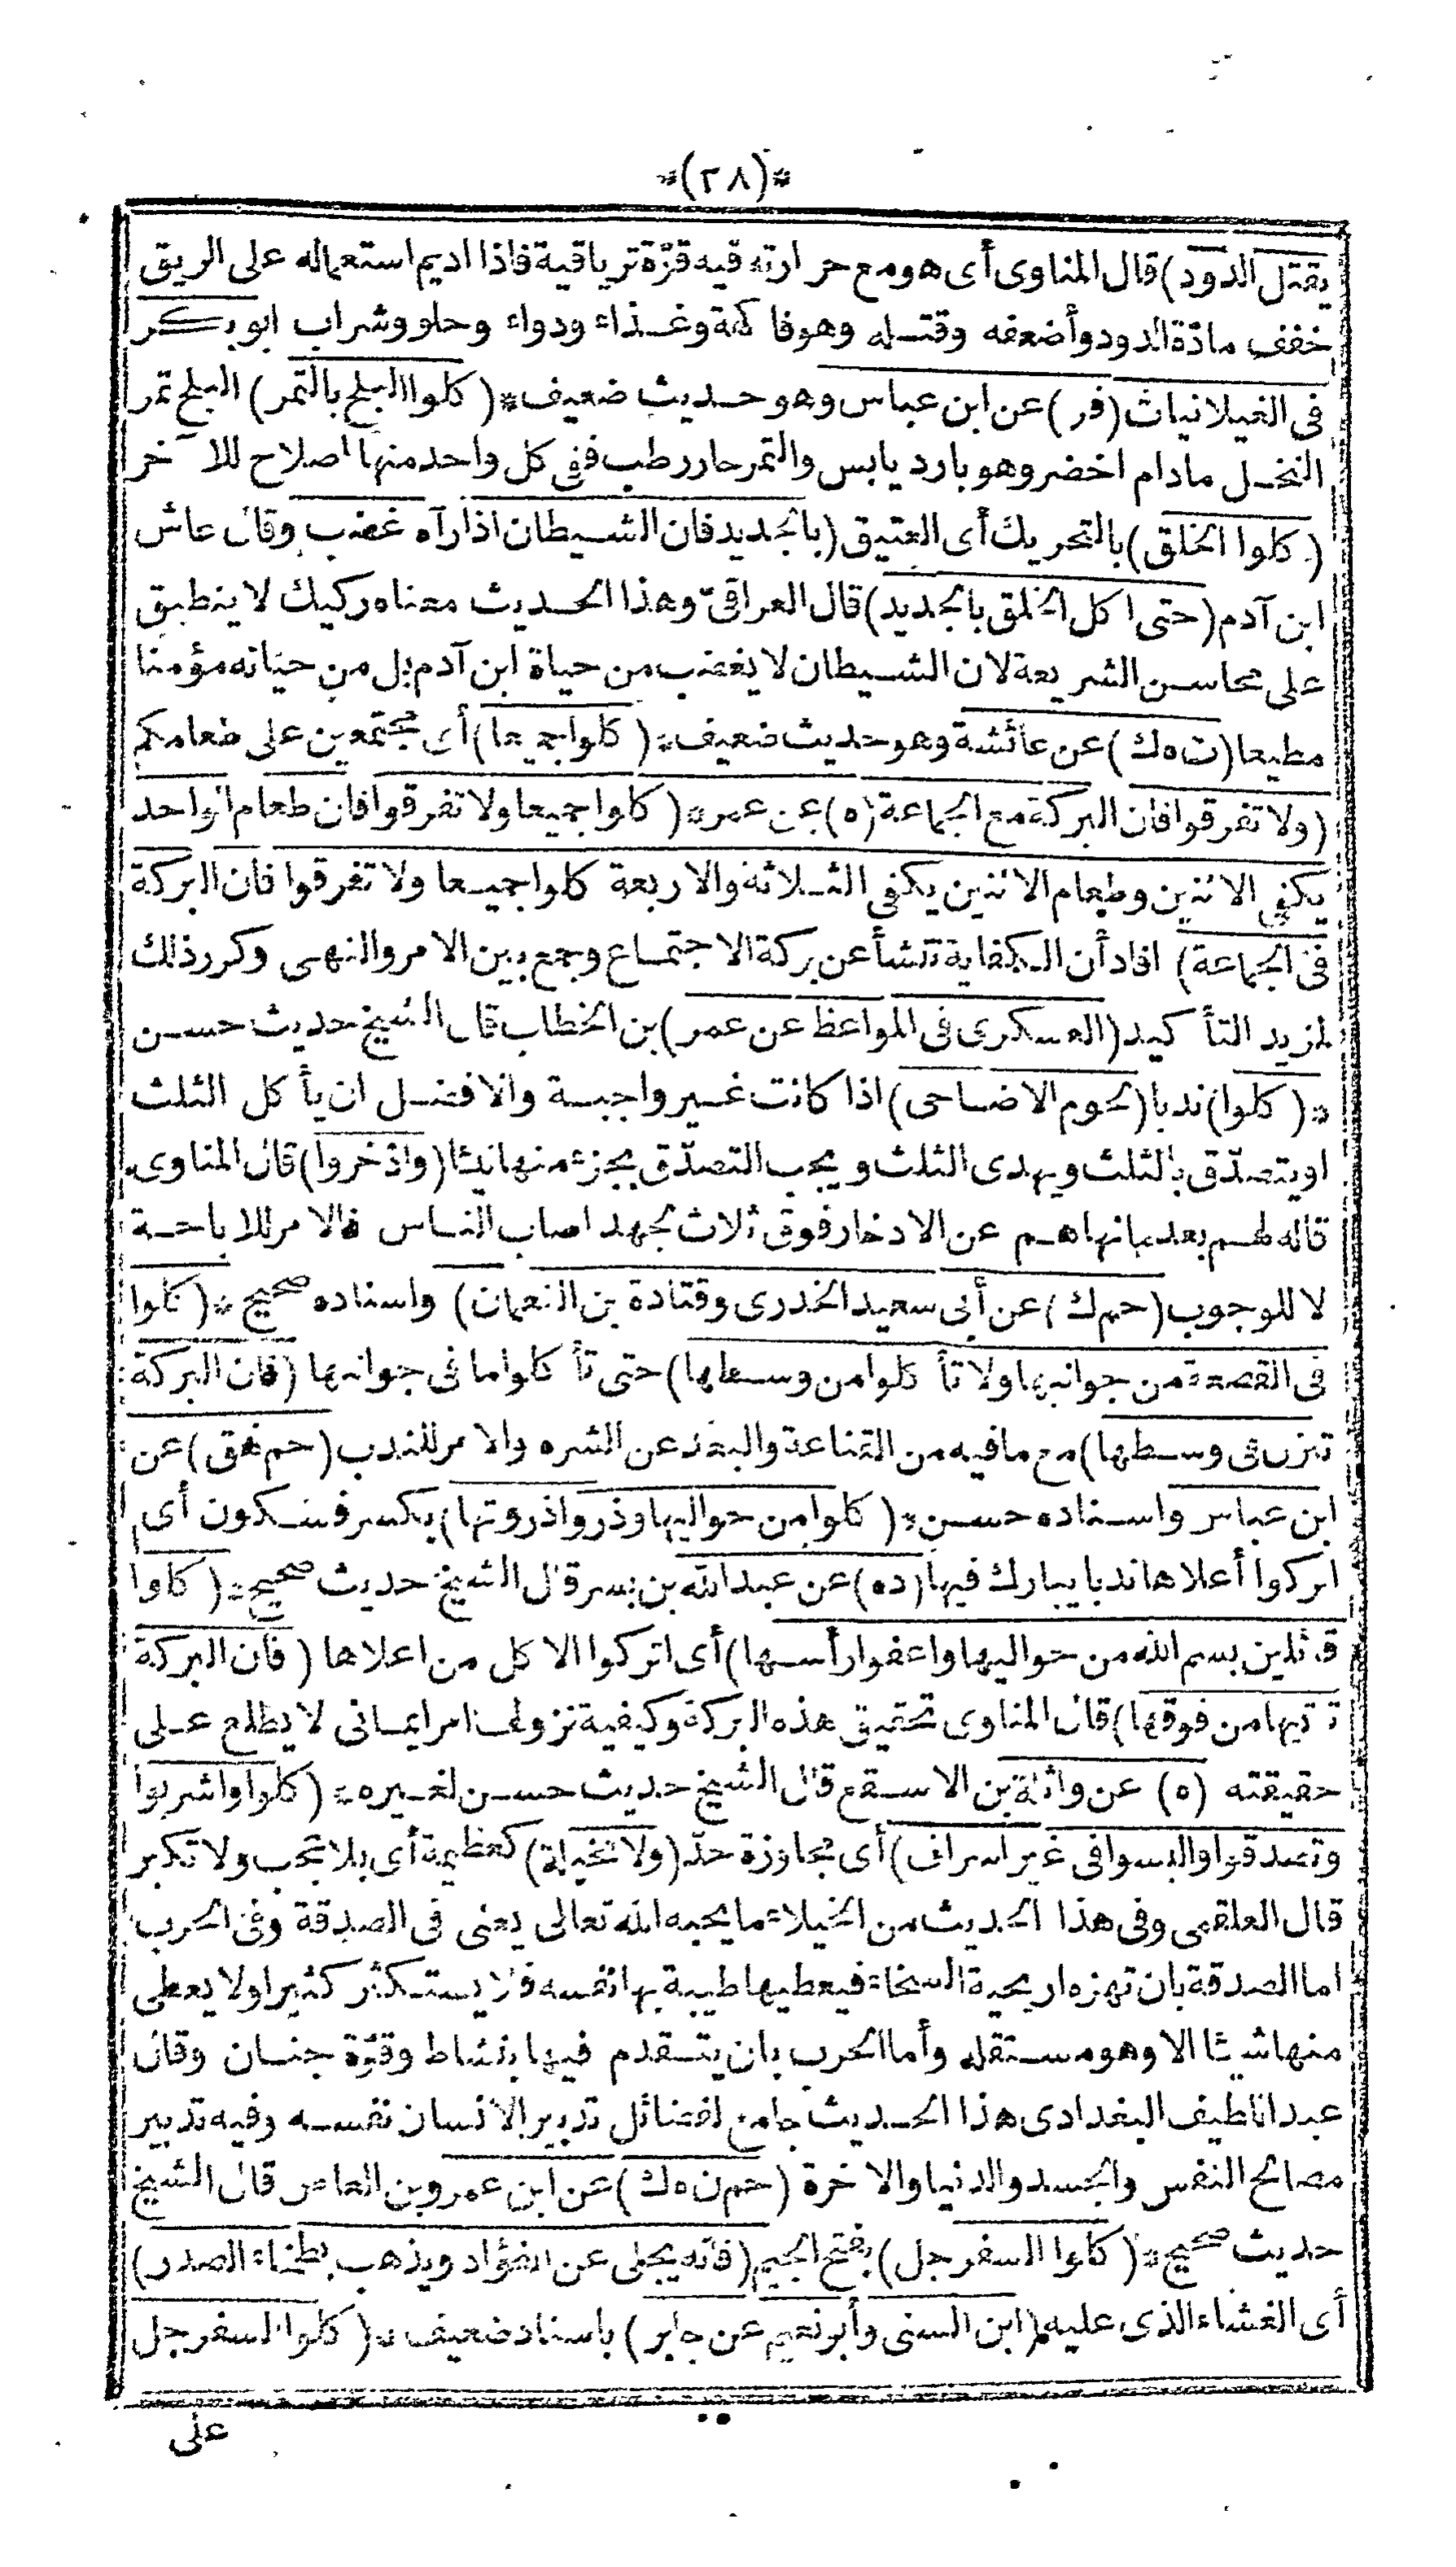 *(٢٨)*
يقتل الدود) قال المناوى أى هو مع حرارته فيه قوّة ترياقية فاذا اديم استعماله على الريق
خفف مادّة الدود وأضعفه وقتله وهو فاكهة وغذاء ودواء وحلو وشراب ابو بكر
فى الغيلانيات (فر) عن ابن عباس وهو حديث ضعيف * (كلوا البلح بالتمر) البلح تمر
النخل مادام اخضر وهو بارد يابس والتمر حار رطب ففى كل واحد منها اصلاح للآخر
(كلوا الخلق) بالتحريك أى العتيق (بالجديد فان الشيطان اذا رآه غضب وقال عاش
ابن آدم (حتى اكل الخلق بالجديد) قال العراقىّ وهذا الحديث معناه ركيك لا ينطبق
على محاسن الشريعة لان الشيطان لا يغضب من حياة ابن آدم بل من حياته مؤمنا
مطيعا (ت ه ك) عن عائشة وهو حديث ضعيف * (كلوا جميعا) أى مجتمعين على طعامكم
(ولا تفرقوا فان البركة مع الجماعة (ه) عن عمر * (كلوا جميعا ولا تفرقوا فان طعام الواحد
يكفى الاثنين وطعام الاثنين يكفى الثلاثة والاربعة كلوا جميعا ولا تفرقوا فان البركة
فى الجماعة) افاد أن الكفاية تنشأ عن بركة الاجتماع وجمع بين الامر والنهى وكرر ذلك
لمزيد التأكيد (العسكرى فى المواعظ عن عمر) بن الخطاب قال الشيخ حديث حسن
* (كلوا) ندبا (لحوم الاضاحى) اذا كانت غير واجبة والافضل ان يأكل الثلث
او يتصدّق بالثلث ويهدى الثلث ويجب التصدّق بجزء منها نيئا (وادّخروا) قال المناوى
قاله لهم بعدما نهاهم عن الادخار فوق ثلاث لجهد اصاب الناس فالامر للاباحة
لا للوجوب (حم ك) عن أبى سعيد الخدرى وقتادة بن النعمان) واسناده صحيح * (كلوا
فى القصعة من جوانبها ولا تأكلوا من وسطها) حتى تأكلوا ما فى جوانبها (فان البركة
تنزل فى وسطها) مع ما فيه من القناعة والبعد عن الشره والامر للندب (حم هق) عن
ابن عباس واسناده حسن * (كلوا من حواليها وذروا ذروتها) بكسر فسكون أى
اتركوا أعلاها ندبا يبارك فيها (ده) عن عبد الله بن بسر قال الشيخ حديث صحيح * (كلوا
قائلين بسم الله من حواليها واعفوا رأسها) أى اتركوا الاكل من اعلاها (فان البركة
تأتيها من فوقها) قال المناوى تحقيق هذه البركة وكيفية نزولها امر ايمانى لا يطلع على
حقيقته (ه) عن واثلة بن الاسقع قال الشيخ حديث حسن لغيره * (كلوا واشربوا
وتصدقوا والبسوا فى غير اسراف) أى مجاوزة حدّ (ولا مخيلة) كعظيمة أى بلا عجب ولا تكبر
قال العلقمى وفى هذا الحديث من الخيلاء ما يحبه الله تعالى يعنى فى الصدقة وفى الحرب
اما الصدقة بان تهزه اريحية السخاء فيعطيها طيبة بها نفسه فلا يستكثر كثيرا ولا يعطى
منها شيئا الا وهو مستقله وأما الحرب بان يتقدم فيها بنشاط وقوّة جنان وقال
عبد اللطيف البغدادى هذا الحديث جامع لفضائل تدبير الانسان نفسه وفيه تدبير
مصالح النفس والجسد والدنيا والاخرة (حم ن ه ك) عن ابن عمرو بن العاص قال الشيخ
حديث صحيح * (كلوا السفرجل) بفتح الجيم (فانه يجلى عن الفؤاد ويذهب بطخاء الصدر)
أى الغشاء الذى عليه (ابن السنى وأبو نعيم عن جابر) باسناد ضعيف * (كلوا السفرجل
على